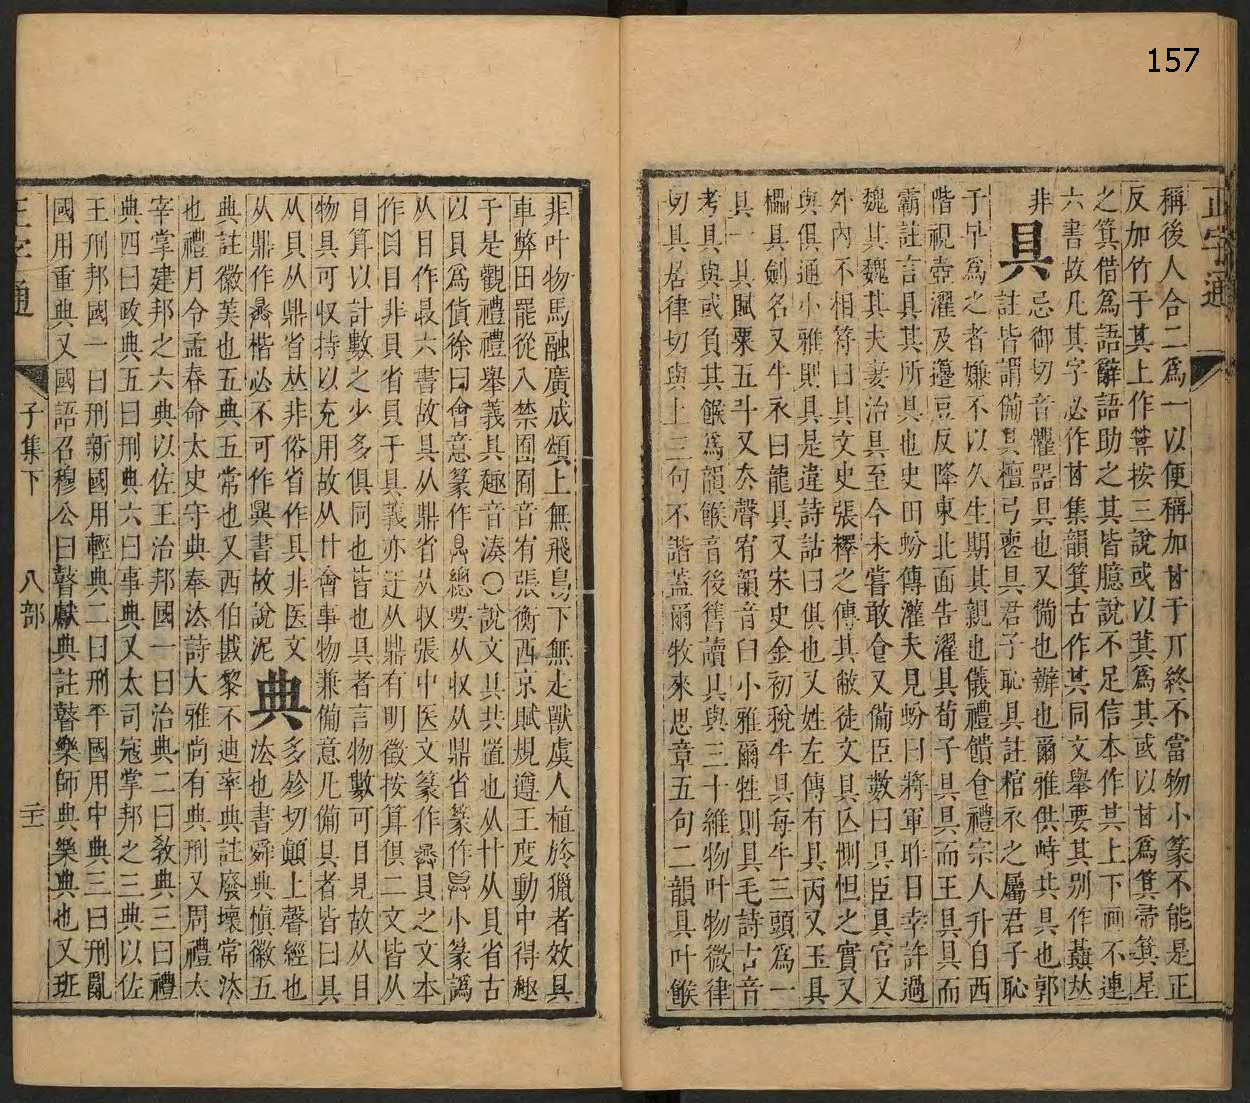 157
正字通
稱後人合二爲一以便稱加甘于丌終不當物小篆不能是正
反加竹于其上作箕按三說或以其爲其或以甘爲箕帚箕星
之箕借爲語辭語助之其皆臆說不足信本作其上下画不連
六書故凡其字必作甘集韻箕古作其同文舉要其別作𠀠
非
具
忌御切音懼器具也又備也辦也爾雅供峙共具也郭
註皆謂備具檀弓喪具君子恥具註棺衣之屬君子恥
子早爲之者嫌不以久生期其親也儀禮饋食禮宗人升自西
階視壺濯及籩豆反降東北面告濯具荀子具具而王具具而
霸註言具其所具也史田蚡傳灌夫見蚡曰將軍昨日幸許過
魏其魏其夫妻治具至今未嘗敢食又備臣數曰具臣具官又
外內不相符曰具文史張釋之傳其敝徒文具亾惻怛之實又
與俱通小雅則具是違詩詁曰俱也又姓左傳有具丙又玉具
櫑具劍名又牛衣曰龍具又宋史金初稅牛具每牛三頭爲一
具一具賦粟五斗又去聲宥韻音臼小雅爾牲則具毛詩古音
考具與或負其餱爲韻餱音後舊讀具與三十維物叶物微律
切具居律切與上三句不諧蓋爾牧來思章五句二韻具叶餱
非叶物馬融廣成頌上無飛鳥下無走獸虞人植旍獵者效具
車弊田罷從入禁囿囿音宥張衡西京賦規遵王度動中得趣
于是觀禮禮舉義具趣音湊〇說文具共置也从廾从貝省古
以貝爲貨徐曰會意篆作總要从収从鼎省篆作小篆譌
从目作最六書故具从鼎省从収張中医文篆作貝之文本
作目非貝省貝于具義亦迂从鼎有明徵按算俱二文皆从
目算以計數之少多俱同也皆也具者言物數可目見故从目
物具可収持以充用故从廾會事物兼備意凡備具者皆曰具
从貝从鼎省𠀤非俗省作具非医文
从鼎作楷必不可作鼎書故說泥
典
多殄切顛上聲經也
法也書舜典愼徽五
典註徽美也五典五常也又西伯戡黎不迪率典註廢壞常法
也禮月令孟春命太史守典奉法詩大雅尚有典刑又周禮太
宰掌建邦之六典以佐王治邦國一曰治典二曰敎典三曰禮
典四曰政典五曰刑典六曰事典又太司寇掌邦之三典以佐
王刑邦國一曰刑新國用輕典二曰刑平國用中典三曰刑亂
國用重典又國語召穆公曰瞽獻典註瞽樂師典樂典也又班
正字通
子集下
八部
二十二